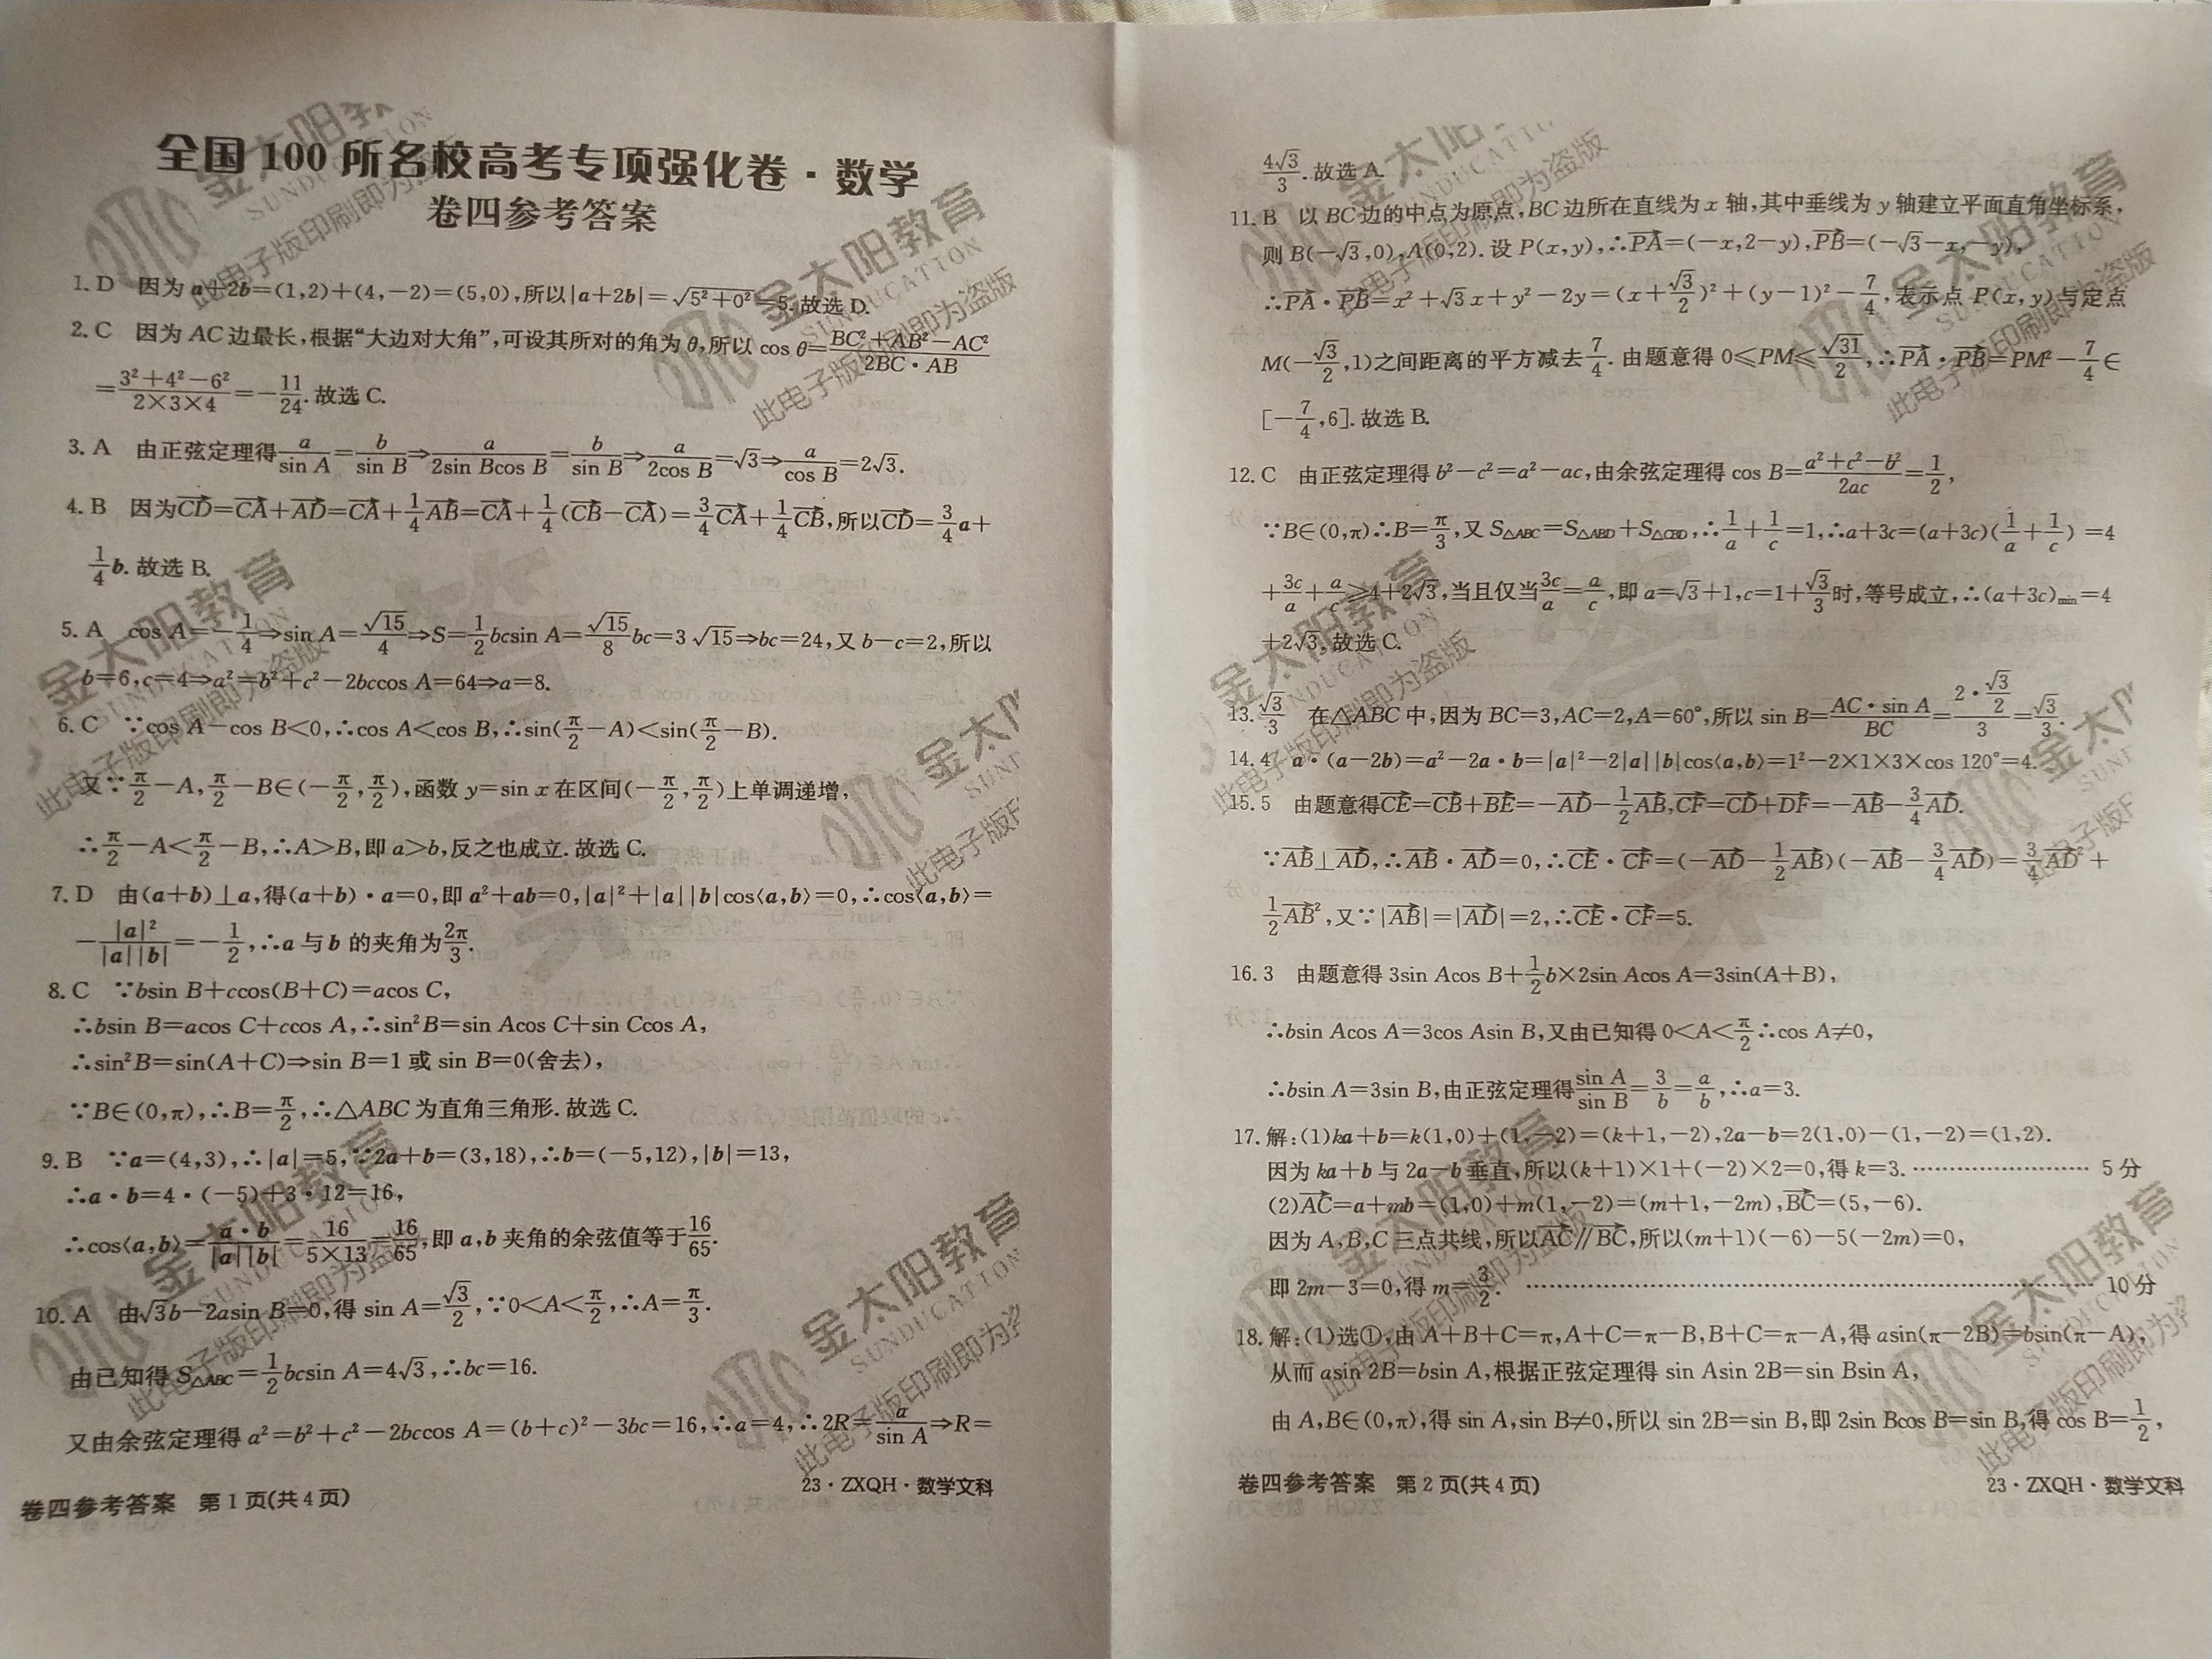 全国100所名校高考专项强化卷·数学
卷四参考答案
1. D 因为a+2b=(1,2)+(4,-2)=(5,0),所以|a+2b|=√(5²+0²)=5.故选D.
2. C 因为AC边最长,根据“大边对大角”,可设其所对的角为θ,所以cos θ=(BC²+AB²-AC²)/(2BC·AB)
=(3²+4²-6²)/(2×3×4)=-11/24.故选C.
3. A 由正弦定理得a/sin A=b/sin B⇒a/(2sin Bcos B)=b/sin B⇒a/(2cos B)=√3⇒a/cos B=2√3.
4. B 因为CD→=CA→+AD→=CA→+1/4AB→=CA→+1/4(CB→-CA→)=3/4CA→+1/4CB→,所以CD→=3/4a+
1/4b.故选B.
5. A cos A=-1/4⇒sin A=√15/4⇒S=1/2bcsin A=√15/8bc=3√15⇒bc=24,又b-c=2,所以
b=6,c=4⇒a²=b²+c²-2bccos A=64⇒a=8.
6. C ∵cos A-cos B<0,∴cos A<cos B,∴sin(π/2-A)<sin(π/2-B).
又∵π/2-A,π/2-B∈(-π/2,π/2),函数y=sin x在区间(-π/2,π/2)上单调递增,
∴π/2-A<π/2-B,∴A>B,即a>b,反之也成立.故选C.
7. D 由(a+b)⊥a,得(a+b)·a=0,即a²+ab=0,|a|²+|a||b|cos⟨a,b⟩=0,∴cos⟨a,b⟩=
-|a|²/(|a||b|)=-1/2,∴a与b的夹角为2π/3.
8. C ∵bsin B+ccos(B+C)=acos C,
∴bsin B=acos C+ccos A,∴sin²B=sin Acos C+sin Ccos A,
∴sin²B=sin(A+C)⇒sin B=1或sin B=0(舍去),
∵B∈(0,π),∴B=π/2,∴△ABC为直角三角形.故选C.
9. B ∵a=(4,3),∴|a|=5,∵2a+b=(3,18),∴b=(-5,12),|b|=13,
∴a·b=4·(-5)+3·12=16,
∴cos⟨a,b⟩=a·b/(|a||b|)=16/(5×13)=16/65,即a,b夹角的余弦值等于16/65.
10. A 由√3b-2asin B=0,得sin A=√3/2,∵0<A<π/2,∴A=π/3.
由已知得S△ABC=1/2bcsin A=4√3,∴bc=16.
又由余弦定理得a²=b²+c²-2bccos A=(b+c)²-3bc=16,∴a=4,∴2R=a/sin A⇒R=
卷四参考答案 第1页(共4页)
23·ZXQH·数学文科
4√3/3.故选A.
11. B 以BC边的中点为原点,BC边所在直线为x轴,其中垂线为y轴建立平面直角坐标系,
则B(-√3,0),A(0,2).设P(x,y),∴PA→=(-x,2-y),PB→=(-√3-x,-y),
∴PA→·PB→=x²+√3x+y²-2y=(x+√3/2)²+(y-1)²-7/4,表示点P(x,y)与定点
M(-√3/2,1)之间距离的平方减去7/4.由题意得0≤PM≤√31/2,∴PA→·PB→=PM²-7/4∈
[-7/4,6].故选B.
12. C 由正弦定理得b²-c²=a²-ac,由余弦定理得cos B=(a²+c²-b²)/2ac=1/2,
∵B∈(0,π)∴B=π/3,又S△ABC=S△ABD+S△CBD,∴1/a+1/c=1,∴a+3c=(a+3c)(1/a+1/c)=4
+3c/a+a/c≥4+2√3,当且仅当3c/a=a/c,即a=√3+1,c=1+√3/3时,等号成立,∴(a+3c)min=4
+2√3.故选C.
13. √3/3 在△ABC中,因为BC=3,AC=2,A=60°,所以sin B=(AC·sin A)/BC=(2·√3/2)/3=√3/3.
14. 4 a·(a-2b)=a²-2a·b=|a|²-2|a||b|cos⟨a,b⟩=1²-2×1×3×cos 120°=4.
15. 5 由题意得CE→=CB→+BE→=-AD→-1/2AB→,CF→=CD→+DF→=-AB→-3/4AD→.
∵AB→⊥AD→,∴AB→·AD→=0,∴CE→·CF→=(-AD→-1/2AB→)(-AB→-3/4AD→)=3/4AD→²+
1/2AB→²,又∵|AB→|=|AD→|=2,∴CE→·CF→=5.
16. 3 由题意得3sin Acos B+1/2b×2sin Acos A=3sin(A+B),
∴bsin Acos A=3cos Asin B,又由已知得0<A<π/2∴cos A≠0,
∴bsin A=3sin B,由正弦定理得sin A/sin B=3/b=a/b,∴a=3.
17. 解:(1)ka+b=k(1,0)+(1,-2)=(k+1,-2),2a-b=2(1,0)-(1,-2)=(1,2).
因为ka+b与2a-b垂直,所以(k+1)×1+(-2)×2=0,得k=3. …………………… 5分
(2)AC→=a+mb=(1,0)+m(1,-2)=(m+1,-2m),BC→=(5,-6).
因为A,B,C三点共线,所以AC→∥BC→,所以(m+1)(-6)-5(-2m)=0,
即2m-3=0,得m=3/2. …………………… 10分
18. 解:(1)选①,由A+B+C=π,A+C=π-B,B+C=π-A,得asin(π-2B)=bsin(π-A),
从而asin 2B=bsin A,根据正弦定理得sin Asin 2B=sin Bsin A,
由A,B∈(0,π),得sin A,sin B≠0,所以sin 2B=sin B,即2sin Bcos B=sin B,得cos B=1/2,
卷四参考答案 第2页(共4页)
23·ZXQH·数学文科
金太阳教育
SUNDUCATION
此电子版印刷即为盗版